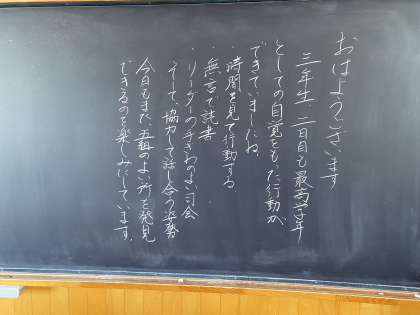 おはようございます
三年生、二日目も最高学年
としての自覚をもった行動が、
できていましたね。
・時間を見て行動する
・無言で読書
・リーダーの手ぎわのよい司会
そして、協力して話し合う姿勢
今日もまた、五組のよい所を発見
できるのを楽しみにしています。